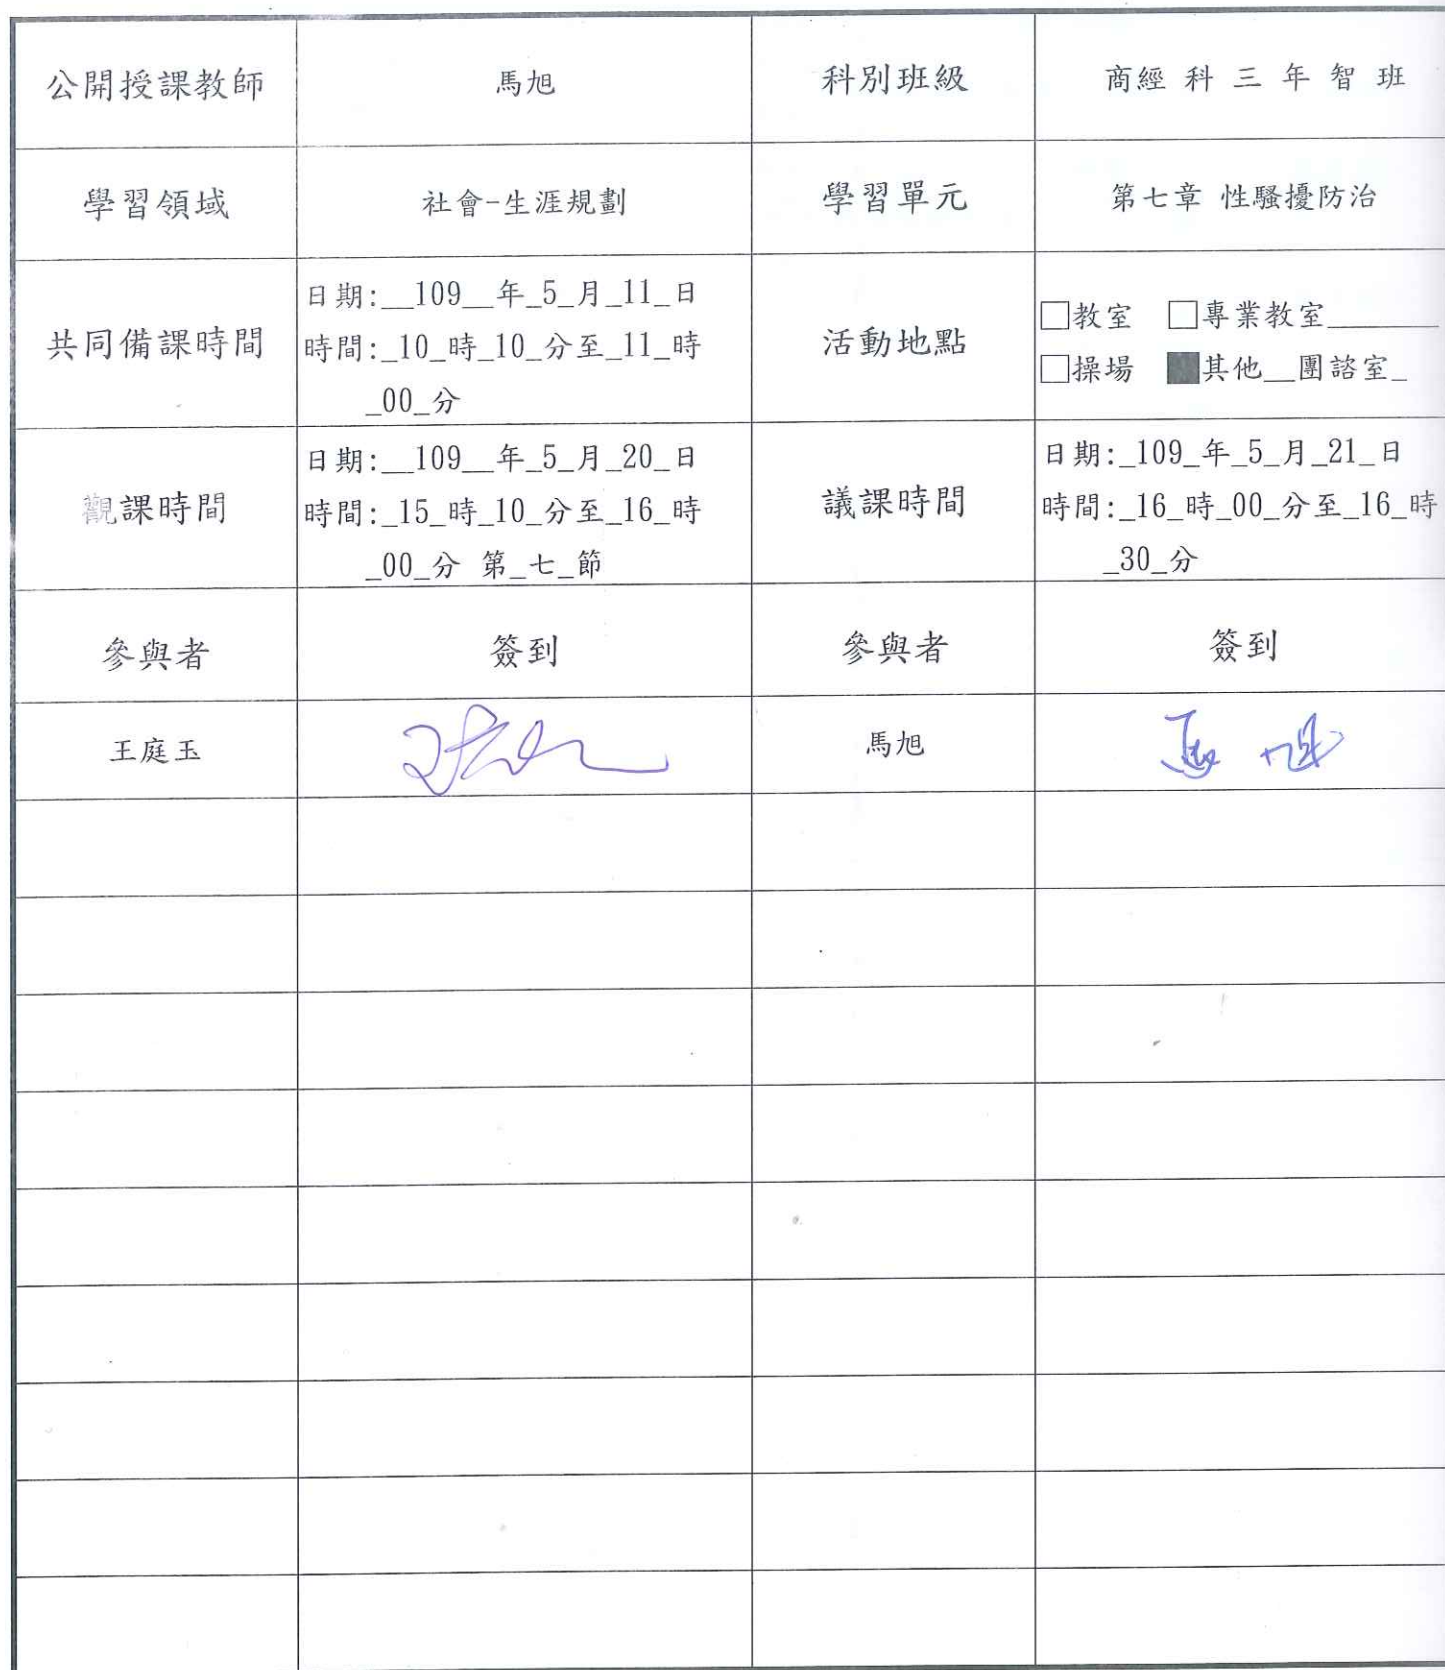 公開授課教師 馬旭 科別班級 商經 科 三 年 智 班
學習領域 社會-生涯規劃 學習單元 第七章 性騷擾防治
共同備課時間
日期:__109__年_5_月_11_日
時間:_10_時_10_分至_11_時
_00_分
活動地點
□教室 □專業教室______
□操場 ■其他__團諮室_
觀課時間
日期:__109__年_5_月_20_日
時間:_15_時_10_分至_16_時
_00_分 第_七_節
議課時間
日期:_109_年_5_月_21_日
時間:_16_時_00_分至_16_時
_30_分
參與者 簽到 參與者 簽到
王庭玉 馬旭 馬旭